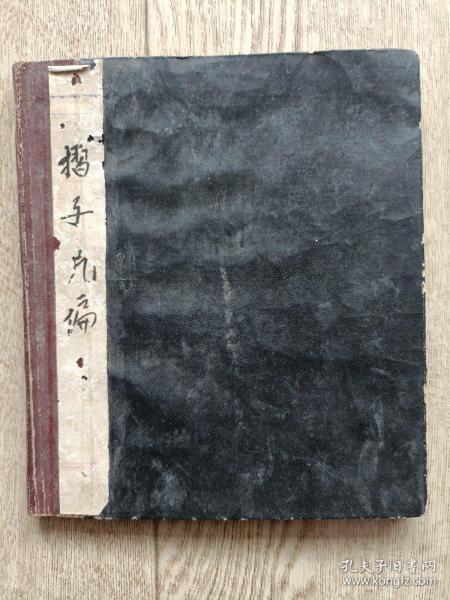 摺子㐬编
孔夫子旧书网
www.kongfz.com